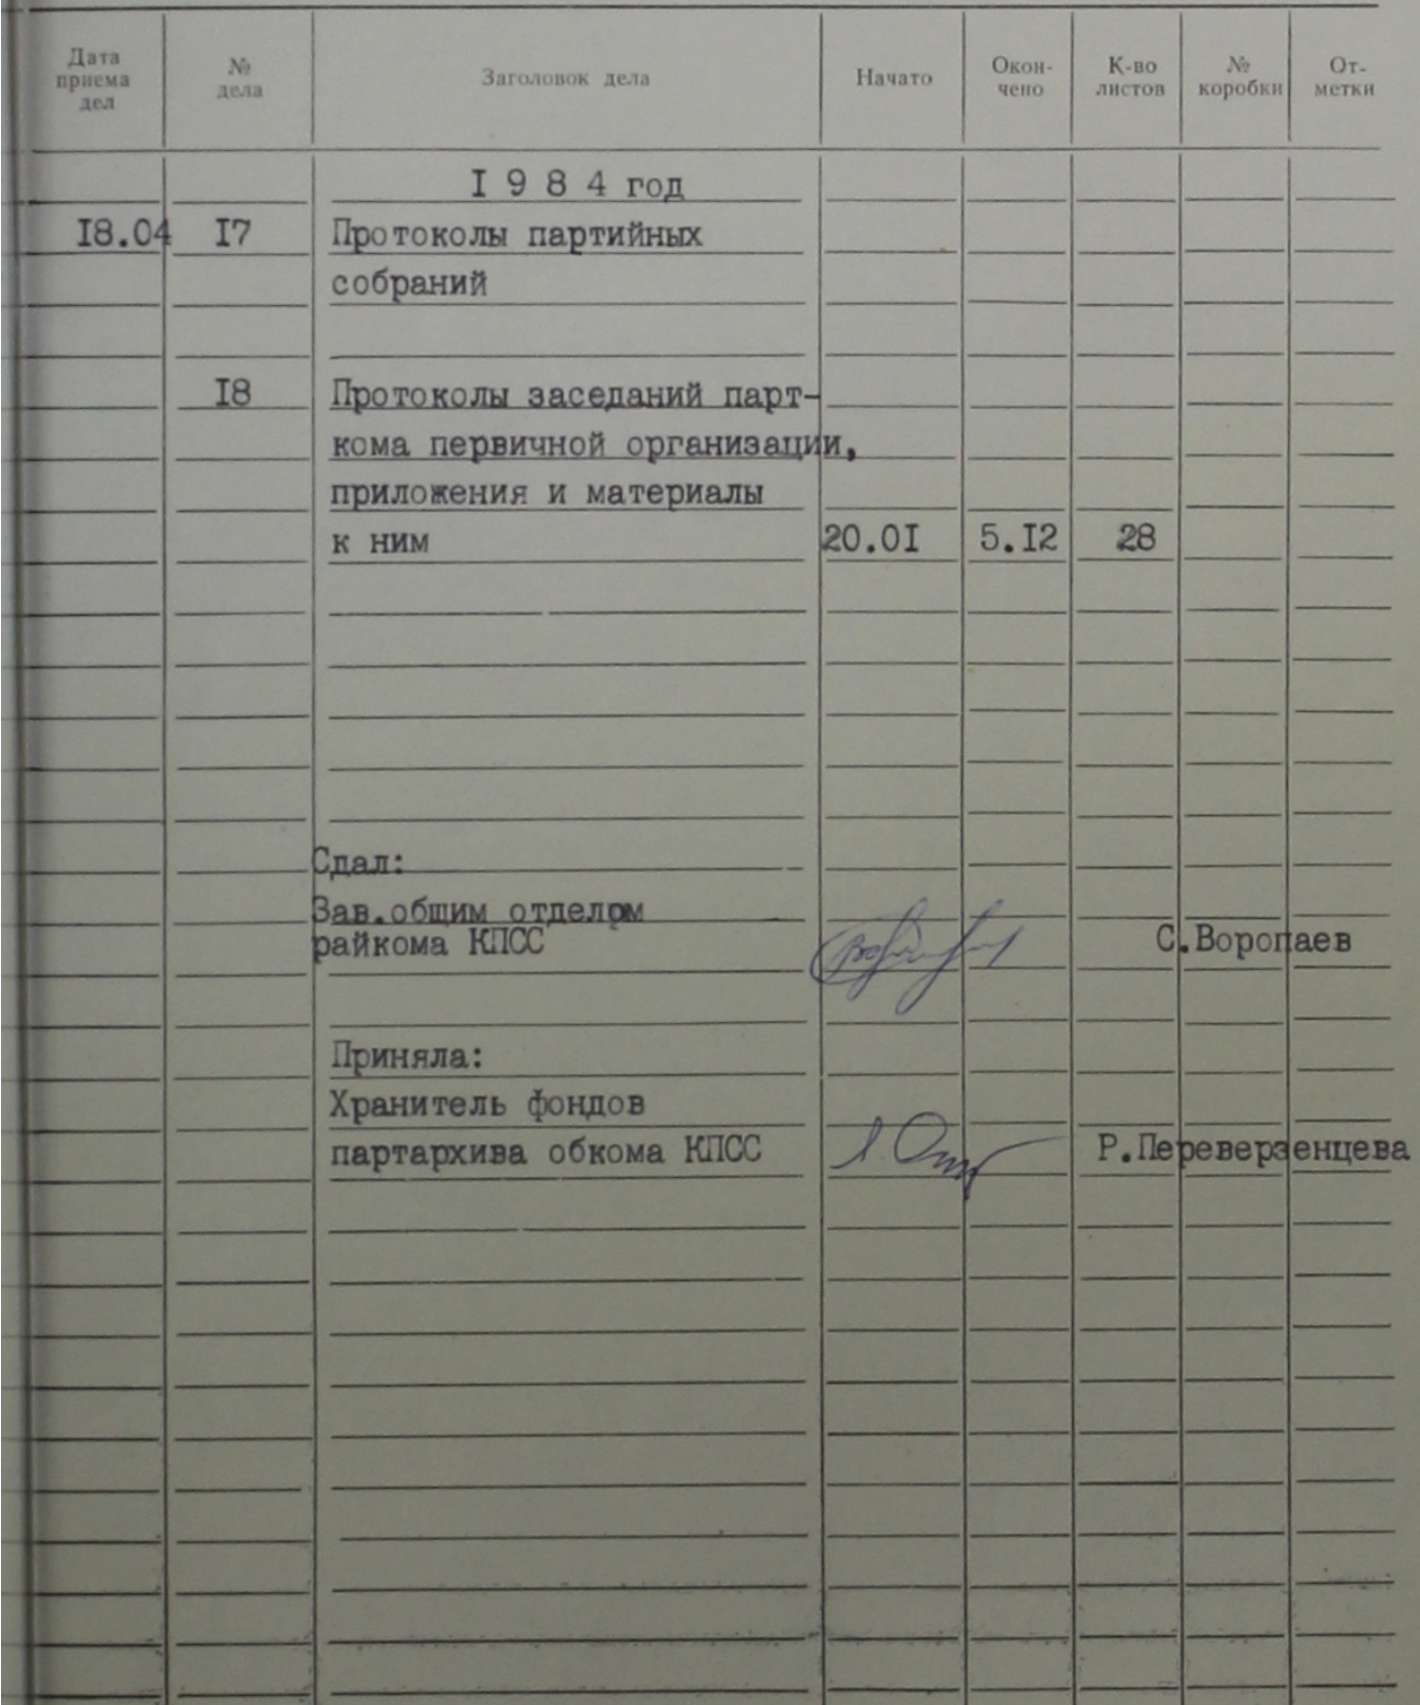 Дата приема дел № дела Заголовок дела Начато Окон-чено К-во листов № коробки От-метки
I 9 8 4 год
I8.04 I7 Протоколы партийных
собраний
I8 Протоколы заседаний парт-
кома первичной организации,
приложения и материалы
к ним 20.0I 5.I2 28
Сдал:
Зав.общим отделом
райкома КПСС С.Воропаев
Приняла:
Хранитель фондов
партархива обкома КПСС Р.Переверзенцева